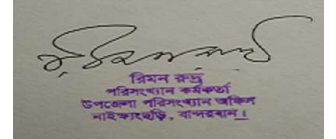 রিমন রুদ্র
পরিসংখ্যান কর্মকর্তা
উপজেলা পরিসংখ্যান অফিস
নাইক্ষ্যংছড়ি, বান্দরবান।